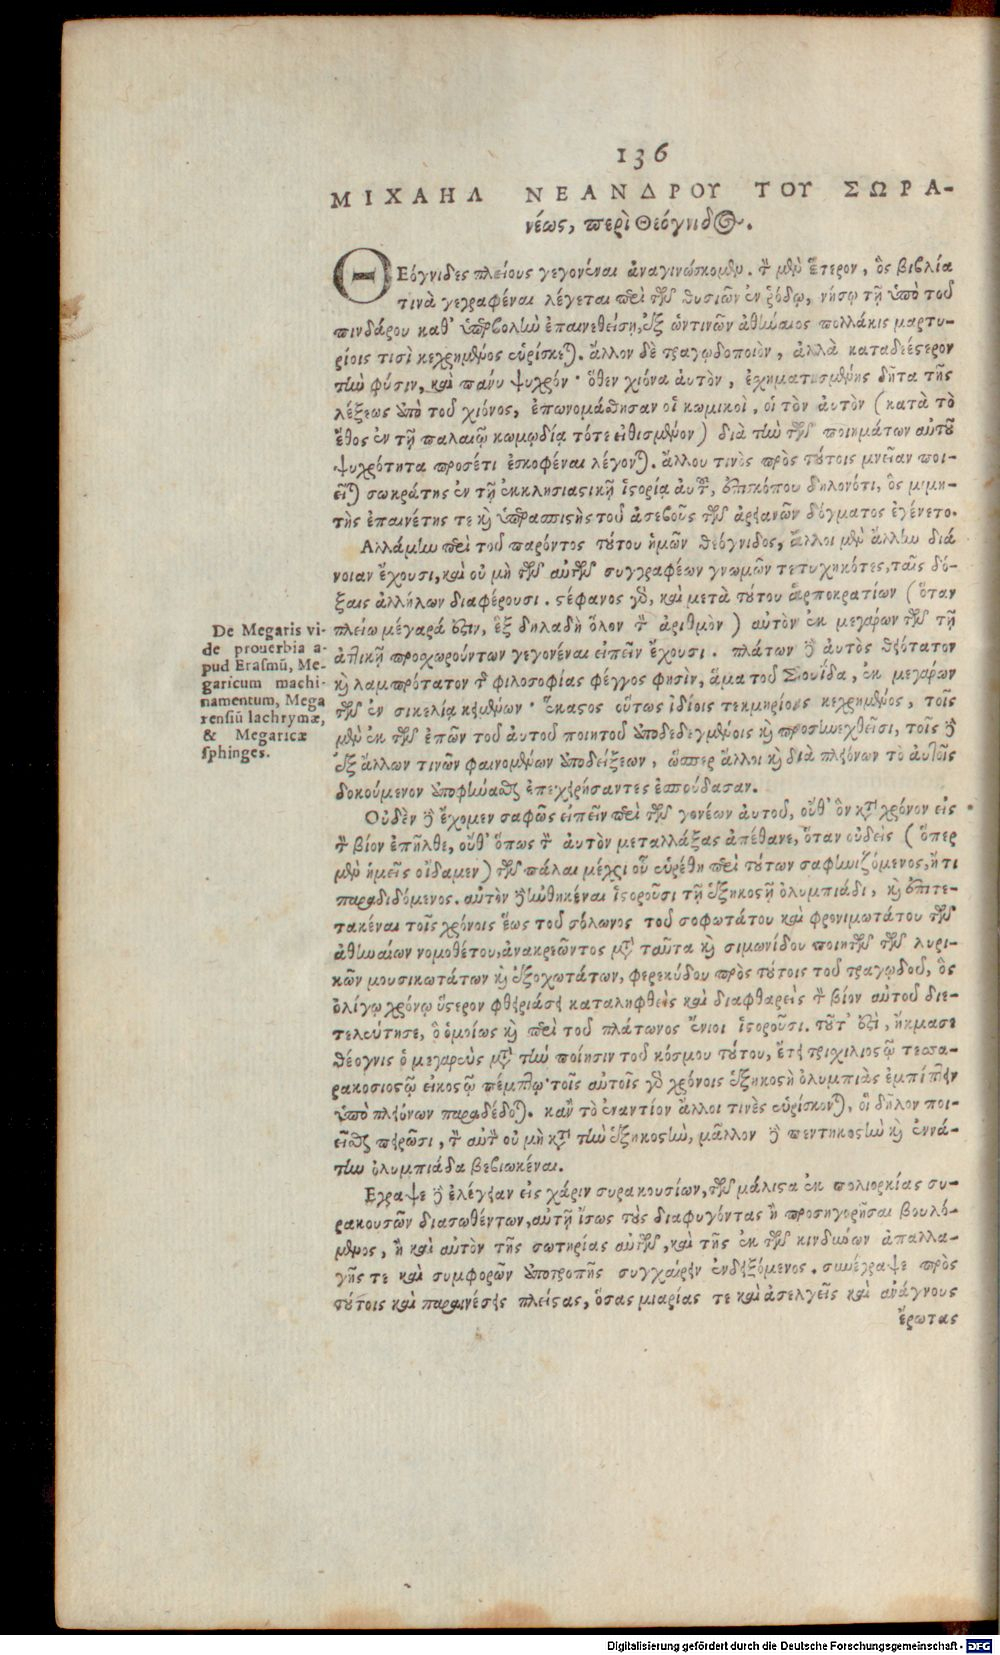 136
ΜΙΧΑΗΛ ΝΕΑΝΔΡΟΥ ΤΟΥ ΣΩΡΑ-
νέως, περὶ Θεόγνιδος.
ΘΕόγνιδες πλείους γεγονέναι ἀναγινώσκομεν. τὸν μὲν ἕτερον, ὃς βιβλία
τινὰ γεγραφέναι λέγεται περὶ τῶν θυσιῶν ἐν ῥόδῳ, νήσῳ τῇ ὑπὸ τοῦ
πινδάρου καθ' ὑπερβολὴν ἐπαινεθείσῃ, ἐξ ὡντινῶν ἀθήναιος πολλάκις μαρτυ-
ρίοις τισὶ κεχρημένος εὑρίσκεται. ἄλλον δὲ τραγῳδοποιὸν, ἀλλὰ καταδεέστερον
τὴν φύσιν, καὶ πάνυ ψυχρόν· ὅθεν χιόνα αὐτὸν, ἐχηματισμένης δῆτα τῆς
λέξεως ὑπὸ τοῦ χιόνος, ἐπωνομάσθησαν οἱ κωμικοὶ, οἱ τὸν αὐτὸν (κατὰ τὸ
ἔθος ἐν τῇ παλαιᾷ κωμῳδίᾳ τότε εἰθισμένον) διὰ τὴν τῶν ποιημάτων αὐτοῦ
ψυχρότητα προσέτι ἐσκοφέναι λέγονται. ἄλλου τινὸς πρὸς τούτοις μνείαν ποι-
εῖται σωκράτης ἐν τῇ ἐκκλησιαστικῇ ἱστορίᾳ αὐτοῦ, ἐπισκόπου δηλονότι, ὃς μιμη-
τὴς ἐπαινέτης τε καὶ ὑπερασπιστὴς τοῦ ἀσεβοῦς τῶν ἀρειανῶν δόγματος ἐγένετο.
Αλλάμὴν περὶ τοῦ παρόντος τούτου ἡμῶν θεόγνιδος, ἄλλοι μὲν ἄλλην διά
νοιαν ἔχουσι, καὶ οὐ μὴ τῶν αὐτῶν συγγραφέων γνωμῶν τετυχηκότες, ταῖς δό-
ξαις ἀλλήλων διαφέρουσι. στέφανος γὰρ, καὶ μετὰ τούτου ἁρποκρατίων (ὅταν
πλείω μέγαρά ἐστιν, ἓξ δηλαδὴ ὅλον τὸν ἀριθμὸν) αὐτὸν ἐκ μεγάρων τῶν τῇ
ἀττικῇ προσχωρούντων γεγονέναι εἰπεῖν ἔχουσι. πλάτων δὲ αὐτὸς θειότατον
καὶ λαμπρότατον τῆς φιλοσοφίας φέγγος φησὶν, ἅμα τοῦ Σουΐδα, ἐκ μεγάρων
τῶν ἐν σικελίᾳ κειμένων· ἕκαστος οὕτως ἰδίοις τεκμηρίοις κεχρημένος, τοῖς
μὲν ἐκ τῶν ἐπῶν τοῦ αὐτοῦ ποιητοῦ ὑποδεδεγμένοις καὶ προσενεχθεῖσι, τοῖς δὲ
ἐξ ἄλλων τινῶν φαινομένων ὑποδείξεων, ὥσπερ ἄλλοι καὶ διὰ πλειόνων τὸ αὐτοῖς
δοκούμενον ὑποφήνασθαι ἐπεχειρήσαντες ἐσπούδασαν.
Οὐδὲν δὲ ἔχομεν σαφῶς εἰπεῖν περὶ τῶν γονέων αὐτοῦ, οὔθ' ὃν κατὰ χρόνον εἰς
τὸν βίον ἐπῆλθε, οὔθ' ὅπως τὸν αὐτὸν μεταλλάξας ἀπέθανε, ὅταν οὐδεὶς (ὅπερ
μὲν ἡμεῖς οἴδαμεν) τῶν πάλαι μέχρι οὗ εὑρέθη περὶ τούτων σαφηνιζόμενος, ἤ τι
παραδιδόμενος. αὐτὸν γενηθηκέναι ἱστοροῦσι τῇ ἑξηκοστῇ ὀλυμπιάδι, καὶ ἐπιτε-
τακέναι τοῖς χρόνοις ἕως τοῦ σόλωνος τοῦ σοφωτάτου καὶ φρονιμωτάτου τῶν
ἀθηναίων νομοθέτου, ἀνακρεῶντος μετὰ ταῦτα καὶ σιμωνίδου ποιητῶν τῶν λυρι-
κῶν μουσικωτάτων καὶ ἐξοχωτάτων, φερεκύδου πρὸς τούτοις τοῦ τραγῳδοῦ, ὃς
ὀλίγῳ χρόνῳ ὕστερον φθειριάσει καταληφθεὶς καὶ διαφθαρεὶς τὸν βίον αὐτοῦ διε-
τελεύτησε, ὃ ὁμοίως καὶ περὶ τοῦ πλάτωνος ἔνιοι ἱστοροῦσι. τοῦτ' ἐστὶ, ἤκμασε
θέογνις ὁ μεγαρεὺς μετὰ τὴν ποίησιν τοῦ κόσμου τούτου, ἔτει τρισχιλιοστῷ τεσσα-
ρακοσιοστῷ εἰκοστῷ πέμπτῳ· τοῖς αὐτοῖς γὰρ χρόνοις ἑξηκοστὴ ὀλυμπιὰς ἐμπίπτειν
ὑπὸ πλειόνων παραδέδοται. κἂν τὸ ἐναντίον ἄλλοι τινὲς εὑρίσκονται, οἳ δῆλον ποι-
εῖσθαι πειρῶσι, τὸν αὐτὸν οὐ μὴ κατὰ τὴν ἑξηκοστὴν, μᾶλλον δὲ πεντηκοστὴν καὶ ἐννά-
την ὀλυμπιάδα βεβιωκέναι.
Εγραψε δὲ ἐλέγειαν εἰς χάριν συρακουσίων, τῶν μάλιστα ἐκ πολιορκίας συ-
ρακουσῶν διασωθέντων, αὐτῇ ἴσως τοὺς διαφυγόντας ἢ προσηγορῆσαι βουλό-
μενος, ἢ καὶ αὐτὸν τῆς σωτηρίας αὐτῶν, καὶ τῆς ἐκ τῶν κινδύνων ἀπαλλα-
γῆς τε καὶ συμφορῶν ὑποτροπῆς συγχαίρειν ἐνδειξόμενος. συνέγραψε πρὸς
τούτοις καὶ παραινέσεις πλείστας, ὅσας μιαρίας τε καὶ ἀσελγεῖς καὶ ἀνάγνους
ἔρωτας
De Megaris vi-
de prouerbia a-
pud Erasmū, Me-
garicum machi-
namentum, Mega
rensiū lachrymæ,
& Megaricæ
sphinges.
Digitalisierung gefördert durch die Deutsche Forschungsgemeinschaft - DFG